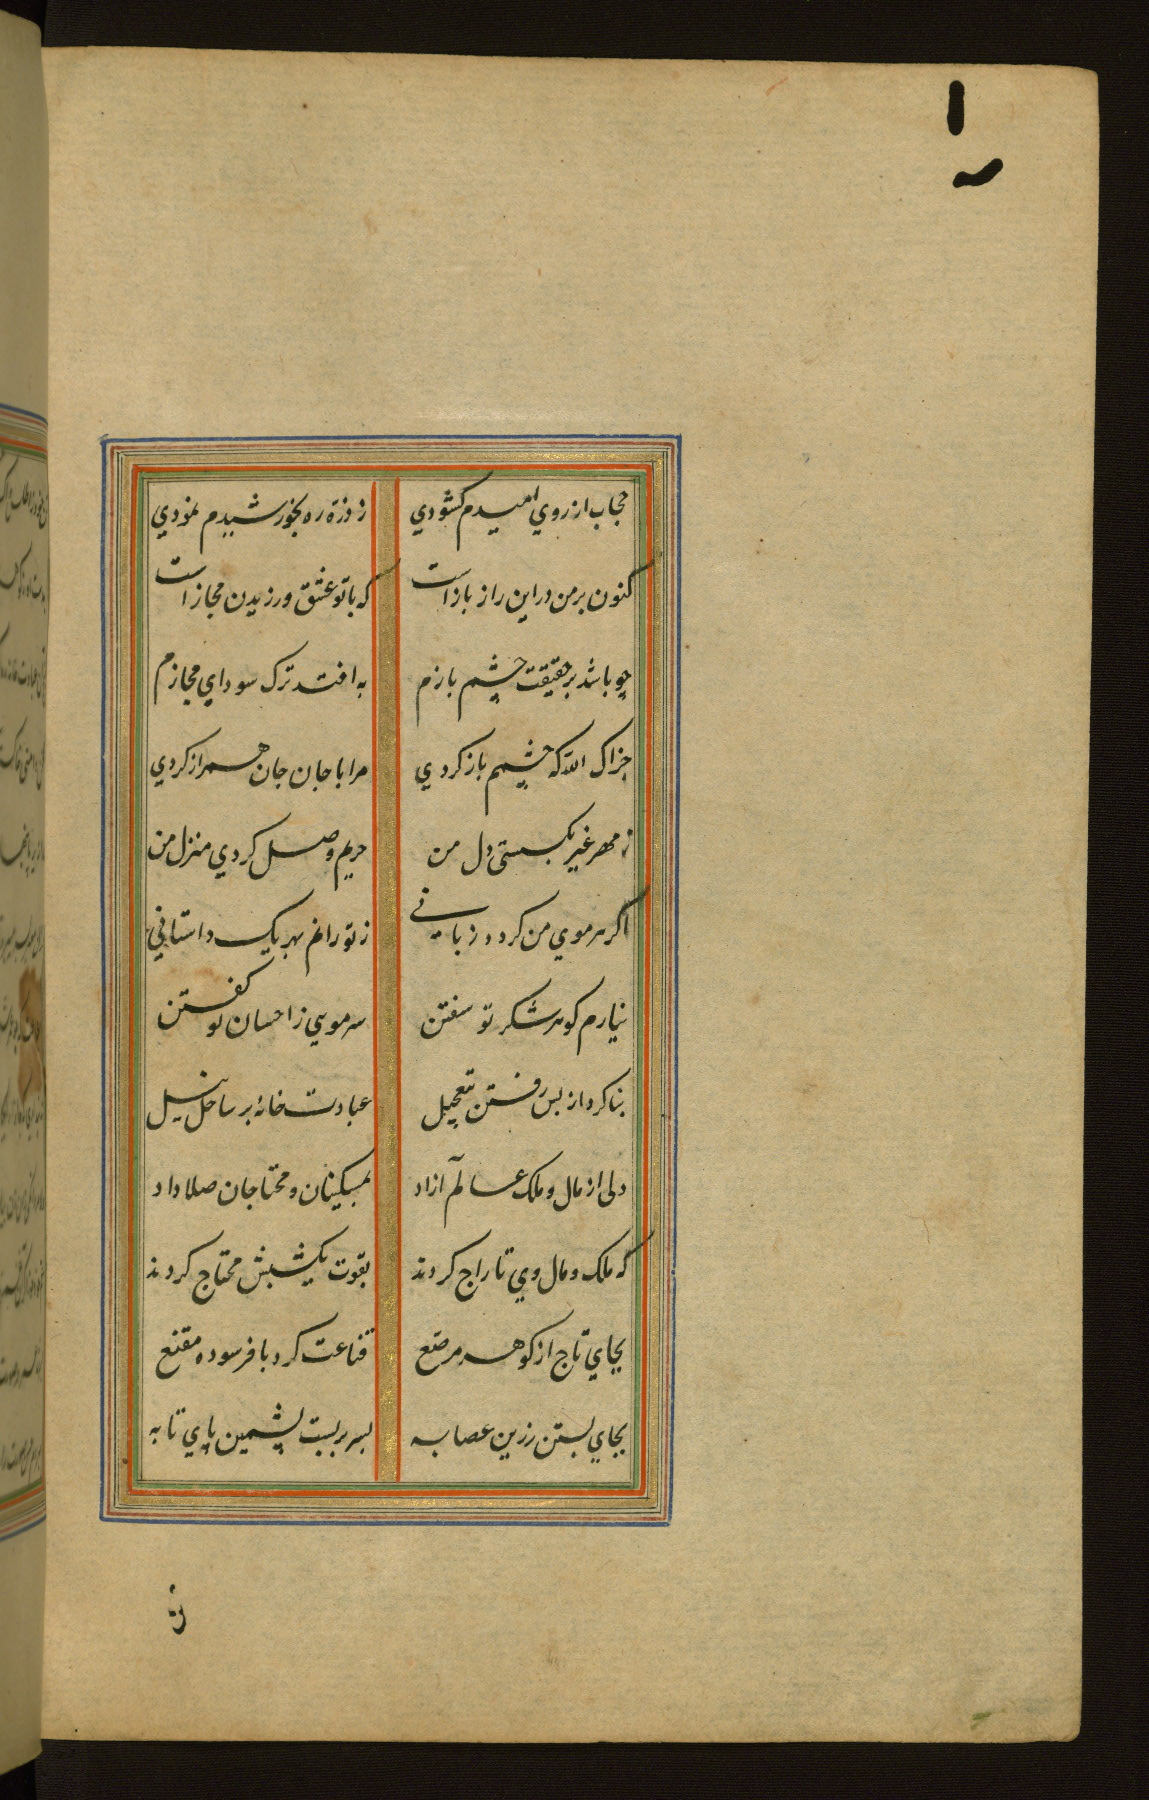 حجاب از روي اميدم كشودي ز ذرّه ره بخورشيدم نمودي
كنون بر من در اين راز باز است كه با تو عشق ورزيدن مجاز است
چو باشد بر حقيقت چشم بازم به افتد ترك سوداي مجازم
جزاك الله كه چشمم باز كردي مرا با جان جان همراز كردي
ز مهر غير بكسستي دل من حريم وصل كردي منزل من
اكر هر موي من كردد زباني ز تو رانم بهر يك داستاني
نيارم كوهر شكر تو سفتن سر موي ز احسان تو كفتن
بنا كرد از پس رفتن بتعجيل عبادت خانۀ بر ساحل نيل
دلي از مال و ملك عالم آزاد بمسكينان و محتاجان صلا داد
كه ملك و مال وي تاراج كردند بقوت يكشبش محتاج كردند
بجاي تاج از كوهر مرصّع قناعت كرد با فرسوده مقنع
بجاي بستن زرين عصابه بسر بر بست پشمين پاي تابه